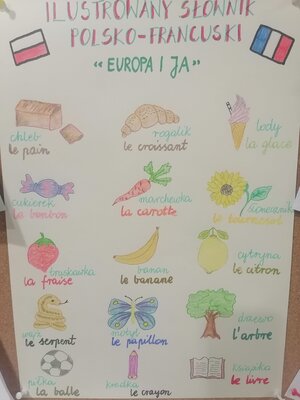 ILUSTROWANY SŁOWNIK
POLSKO-FRANCUSKI
"EUROPA I JA"
chleb
le pain
rogalik
le croissant
lody
la glace
cukierek
le bonbon
marchewka
la carotte
słonecznik
le tournesol
truskawka
la fraise
banan
le banane
cytryna
le citron
wąż
le serpent
motyl
le papillon
drzewo
l'arbre
piłka
la balle
kredka
le crayon
książka
le livre